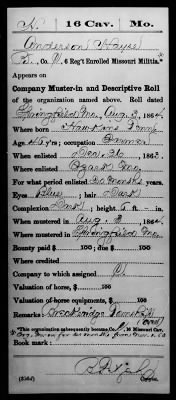 H. | 16 Cav. | Mo.
Anderson Hayse
Co. 6 Reg't Enrolled Missouri Militia.*
Appears on
Company Muster-in and Descriptive Roll
of the organization named above. Roll dated
Springfield Mo., Aug. 3, 1864.
Where born Hawkins Tenn.
Age 46 y'rs; occupation Farmer
When enlisted Dec. 26, 1863.
Where enlisted Ozark Mo.
For what period enlisted 20 months
Eyes Blue; hair Dark
Complexion Dark; height 5 ft. in.
When mustered in Aug. 3, 1864.
Where mustered in Springfield Mo.
Bounty paid $ 100; due $ 100
Where credited
Company to which assigned
Valuation of horse, $ 100
Valuation of horse equipments, $ 100
Remarks:
*This organization subsequently became Co. 16 Reg't
Book mark:
(356d) Copyist.